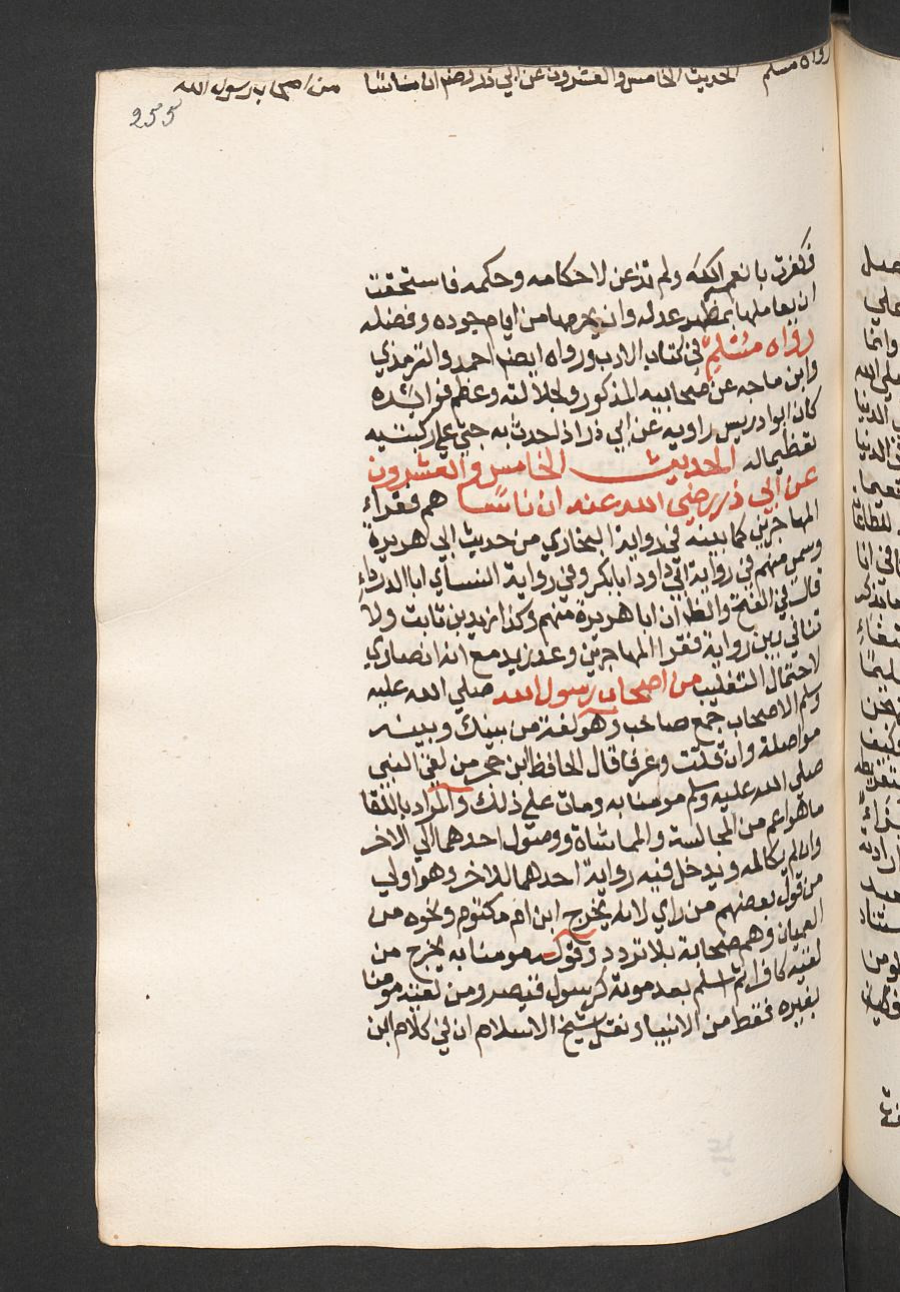 رواه مسلم الحديث الخامس والعشرون عن ابي ذر رضي ان ناسا من اصحاب رسول الله
255
فكفرت بانعم الله ولم تذعن لاحكامه وحكمه فاستحقت
ان يعاملها بمظهر عدله وان يحرمها من ايام جوده وفضله
رواه مسلم في كتاب الادب ورواه ايضا احمد والترمذي
وابن ماجه عن صحابيه المذكور ولجلالته وعظم فوائده
كان ابوادريس راويه عن ابي ذر اذا حدث به جثي علي ركبتيه
تعظيما له الحديث الخامس والعشرون
عن ابي ذر رضي الله عنه ان ناسا هم فقراء
المهاجرين كما بينه في رواية البخاري من حديث ابي هريرة
وسمي منهم في رواية ابي داود ابا بكر وفي رواية النسأي ابا الدرداء
قال في الفتح والظ ان ابا هريرة منهم وكذا زيد بن ثابت ولا
تنافي بين رواية فقرا المهاجرين وعد زيد مع انه انصاري
لاحتمال التغليب من اصحاب رسول الله صلي الله عليه
وسلم الاصحاب جمع صاحب وهو لغة من بينك وبينه
مواصلة وان قلت وعرفا قال الحافظ ابن حجر من لقي النبي
صلي الله عليه وسلم مومنا به ومات علي ذلك والمراد باللقا
ما هو اعم من المجالسة والمماشاة ووصول احدهما الي الاخر
وان لم يكالمه ويدخل فيه رواية احدهما للاخر وهو اولي
من قول بعضهم من راي لانه يخرج ابن ام مكتوم ونحوه من
العميان وهم صحابة بلا تردد وقوله مومنا به يخرج من
لقيه كافرا ثم اسلم بعد موته كرسول قيصر ومن لقيه مومنا
بغيره فقط من الانبياء نقل شيخ الاسلام ان في كلام ابن